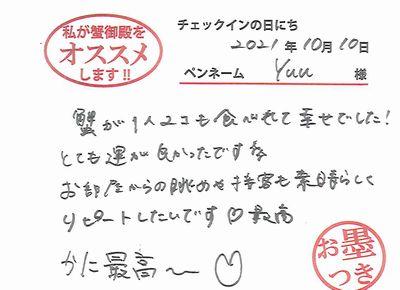 私が蟹御殿を
オススメ
します!!
チェックインの日にち
2021年10月10日
ペンネーム Yuu 様
蟹が1人2コも食べれて幸せでした!
とても運が良かったです
お部屋からの眺めや接客も素晴らしく
リピートしたいです♡最高
かに最高〜♡
お墨
つき